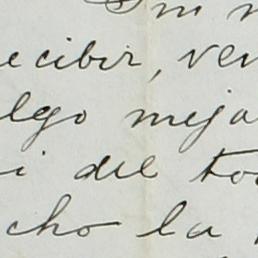 ecibir, ven
lgo mejo
i del to
cho la